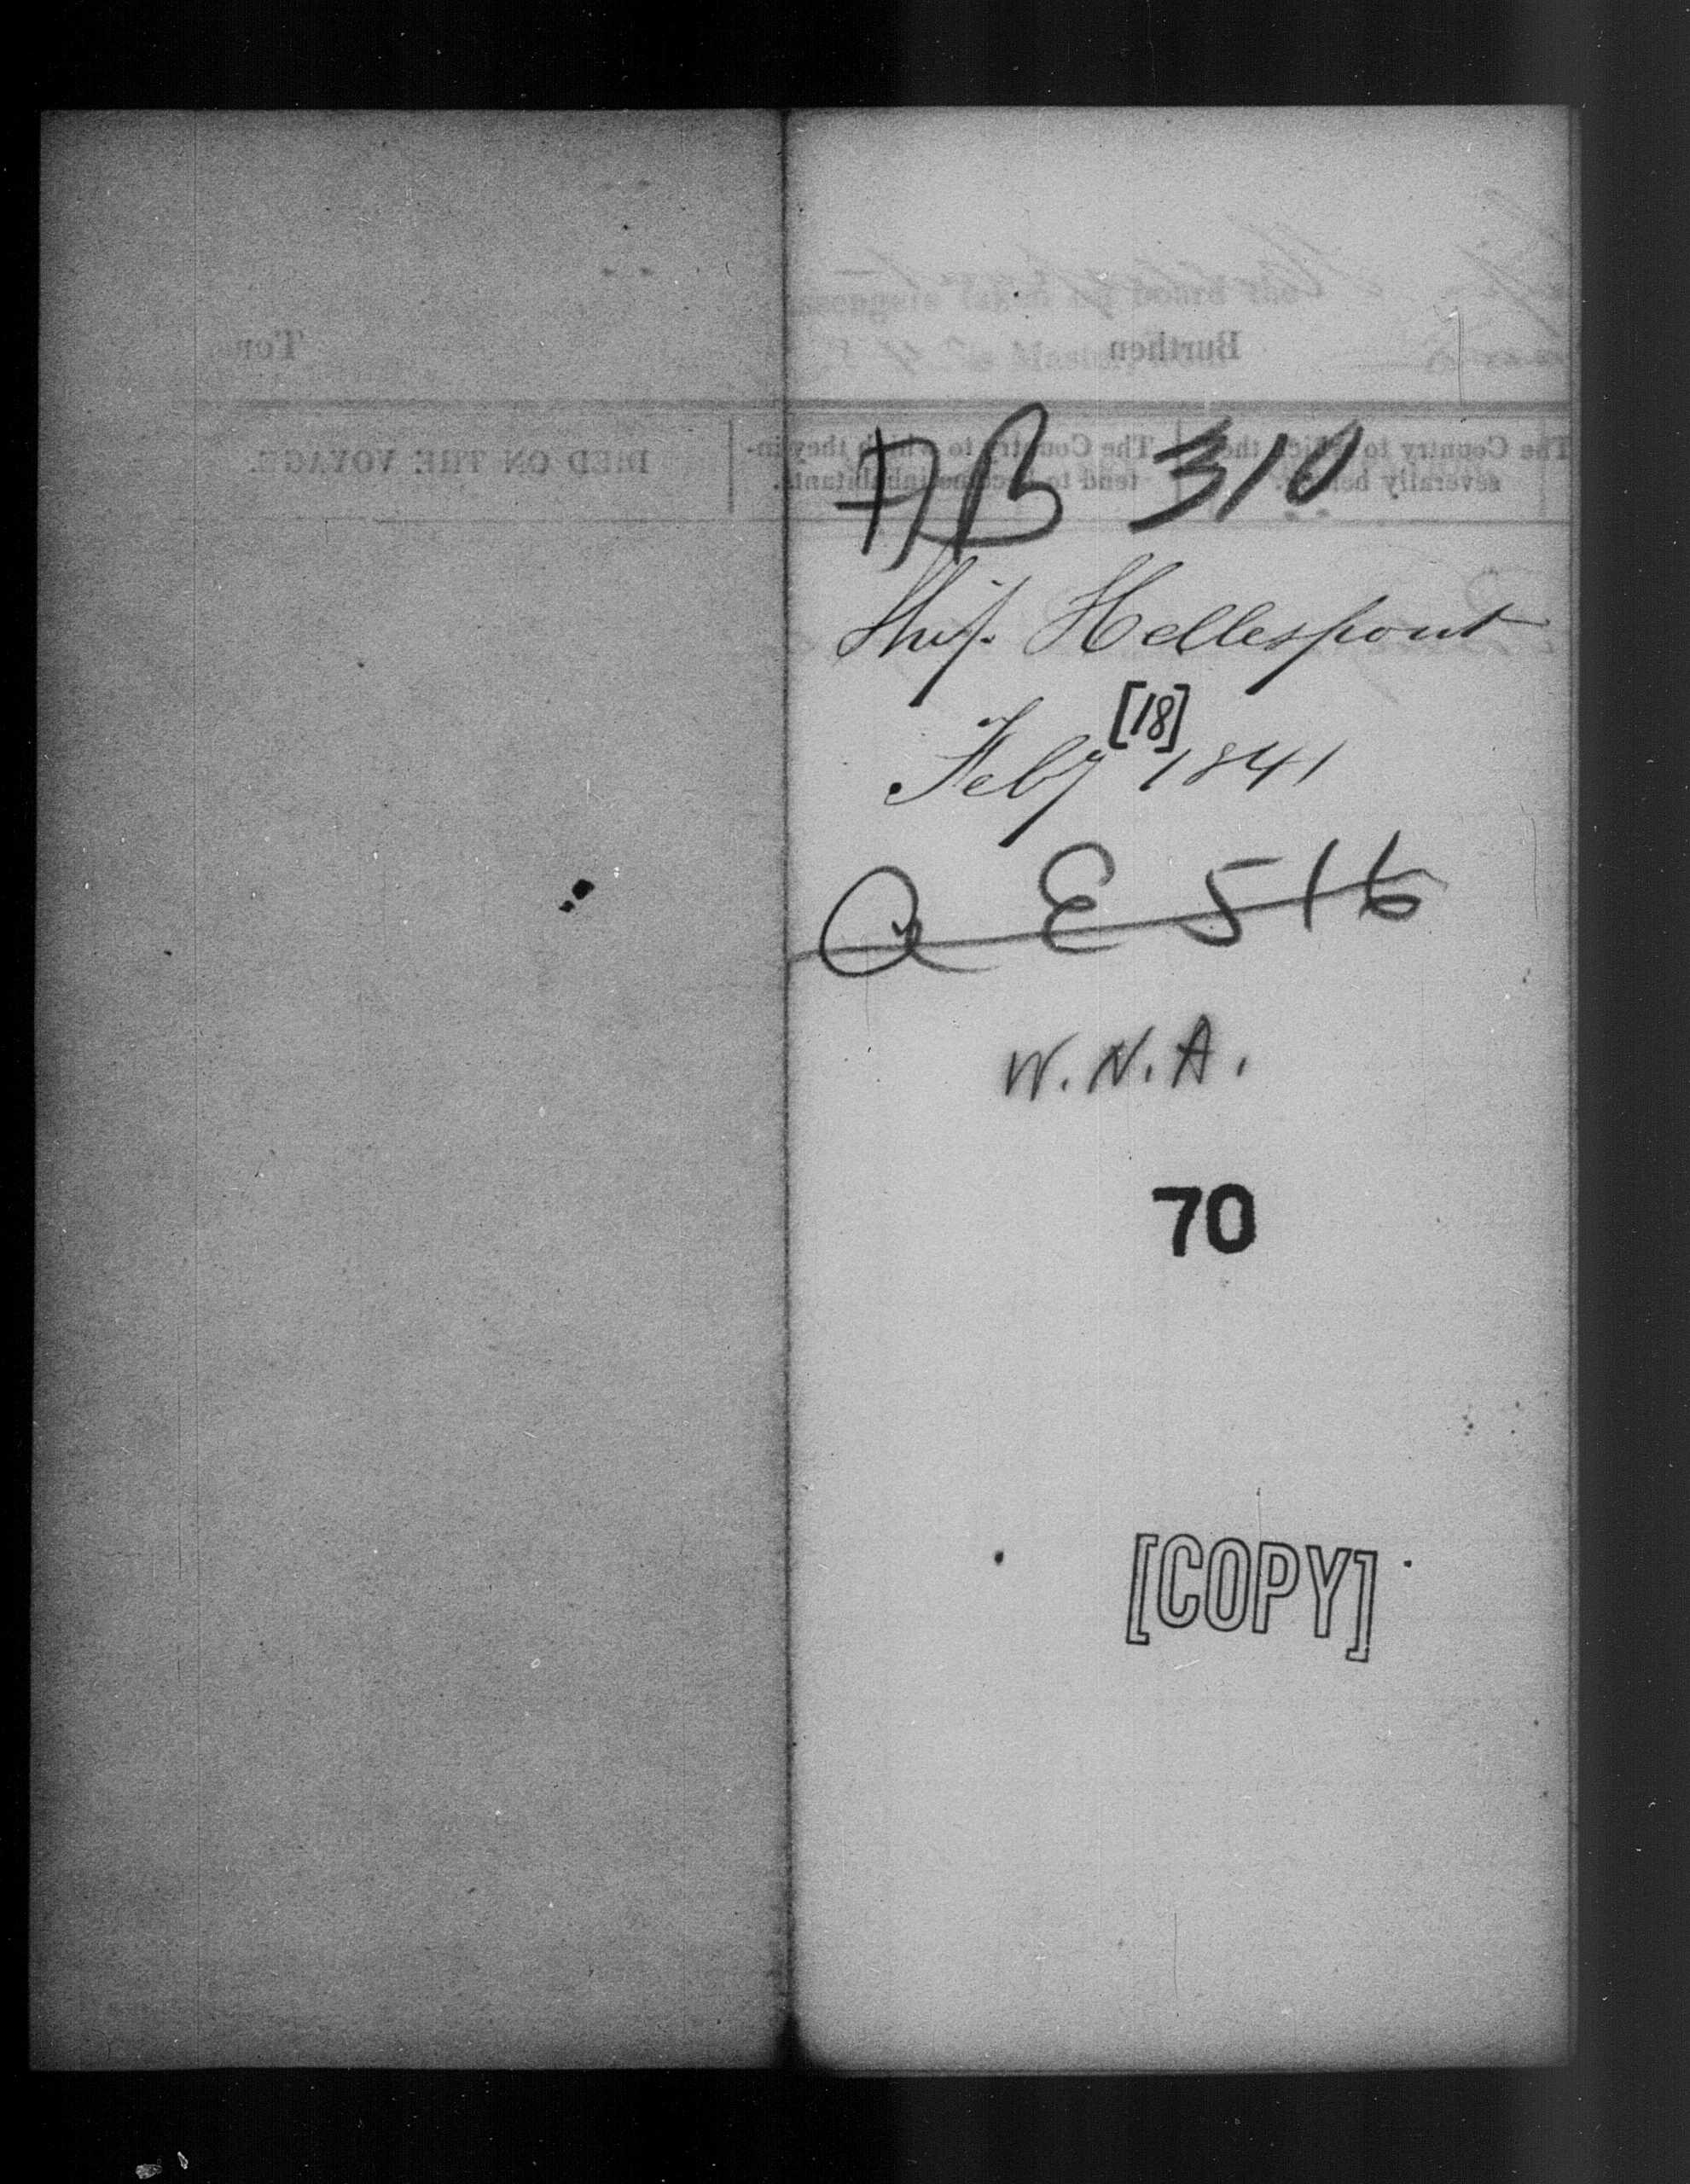 AB 310
Ship Hellespont
[18]
Feby 1841
Q E 516
W.N.A.
70
[COPY]
Tons
Burthen
DIED ON THE VOYAGE.
The Country to which they in-
tend to become inhabitants.
The Country to which they
severally belong.